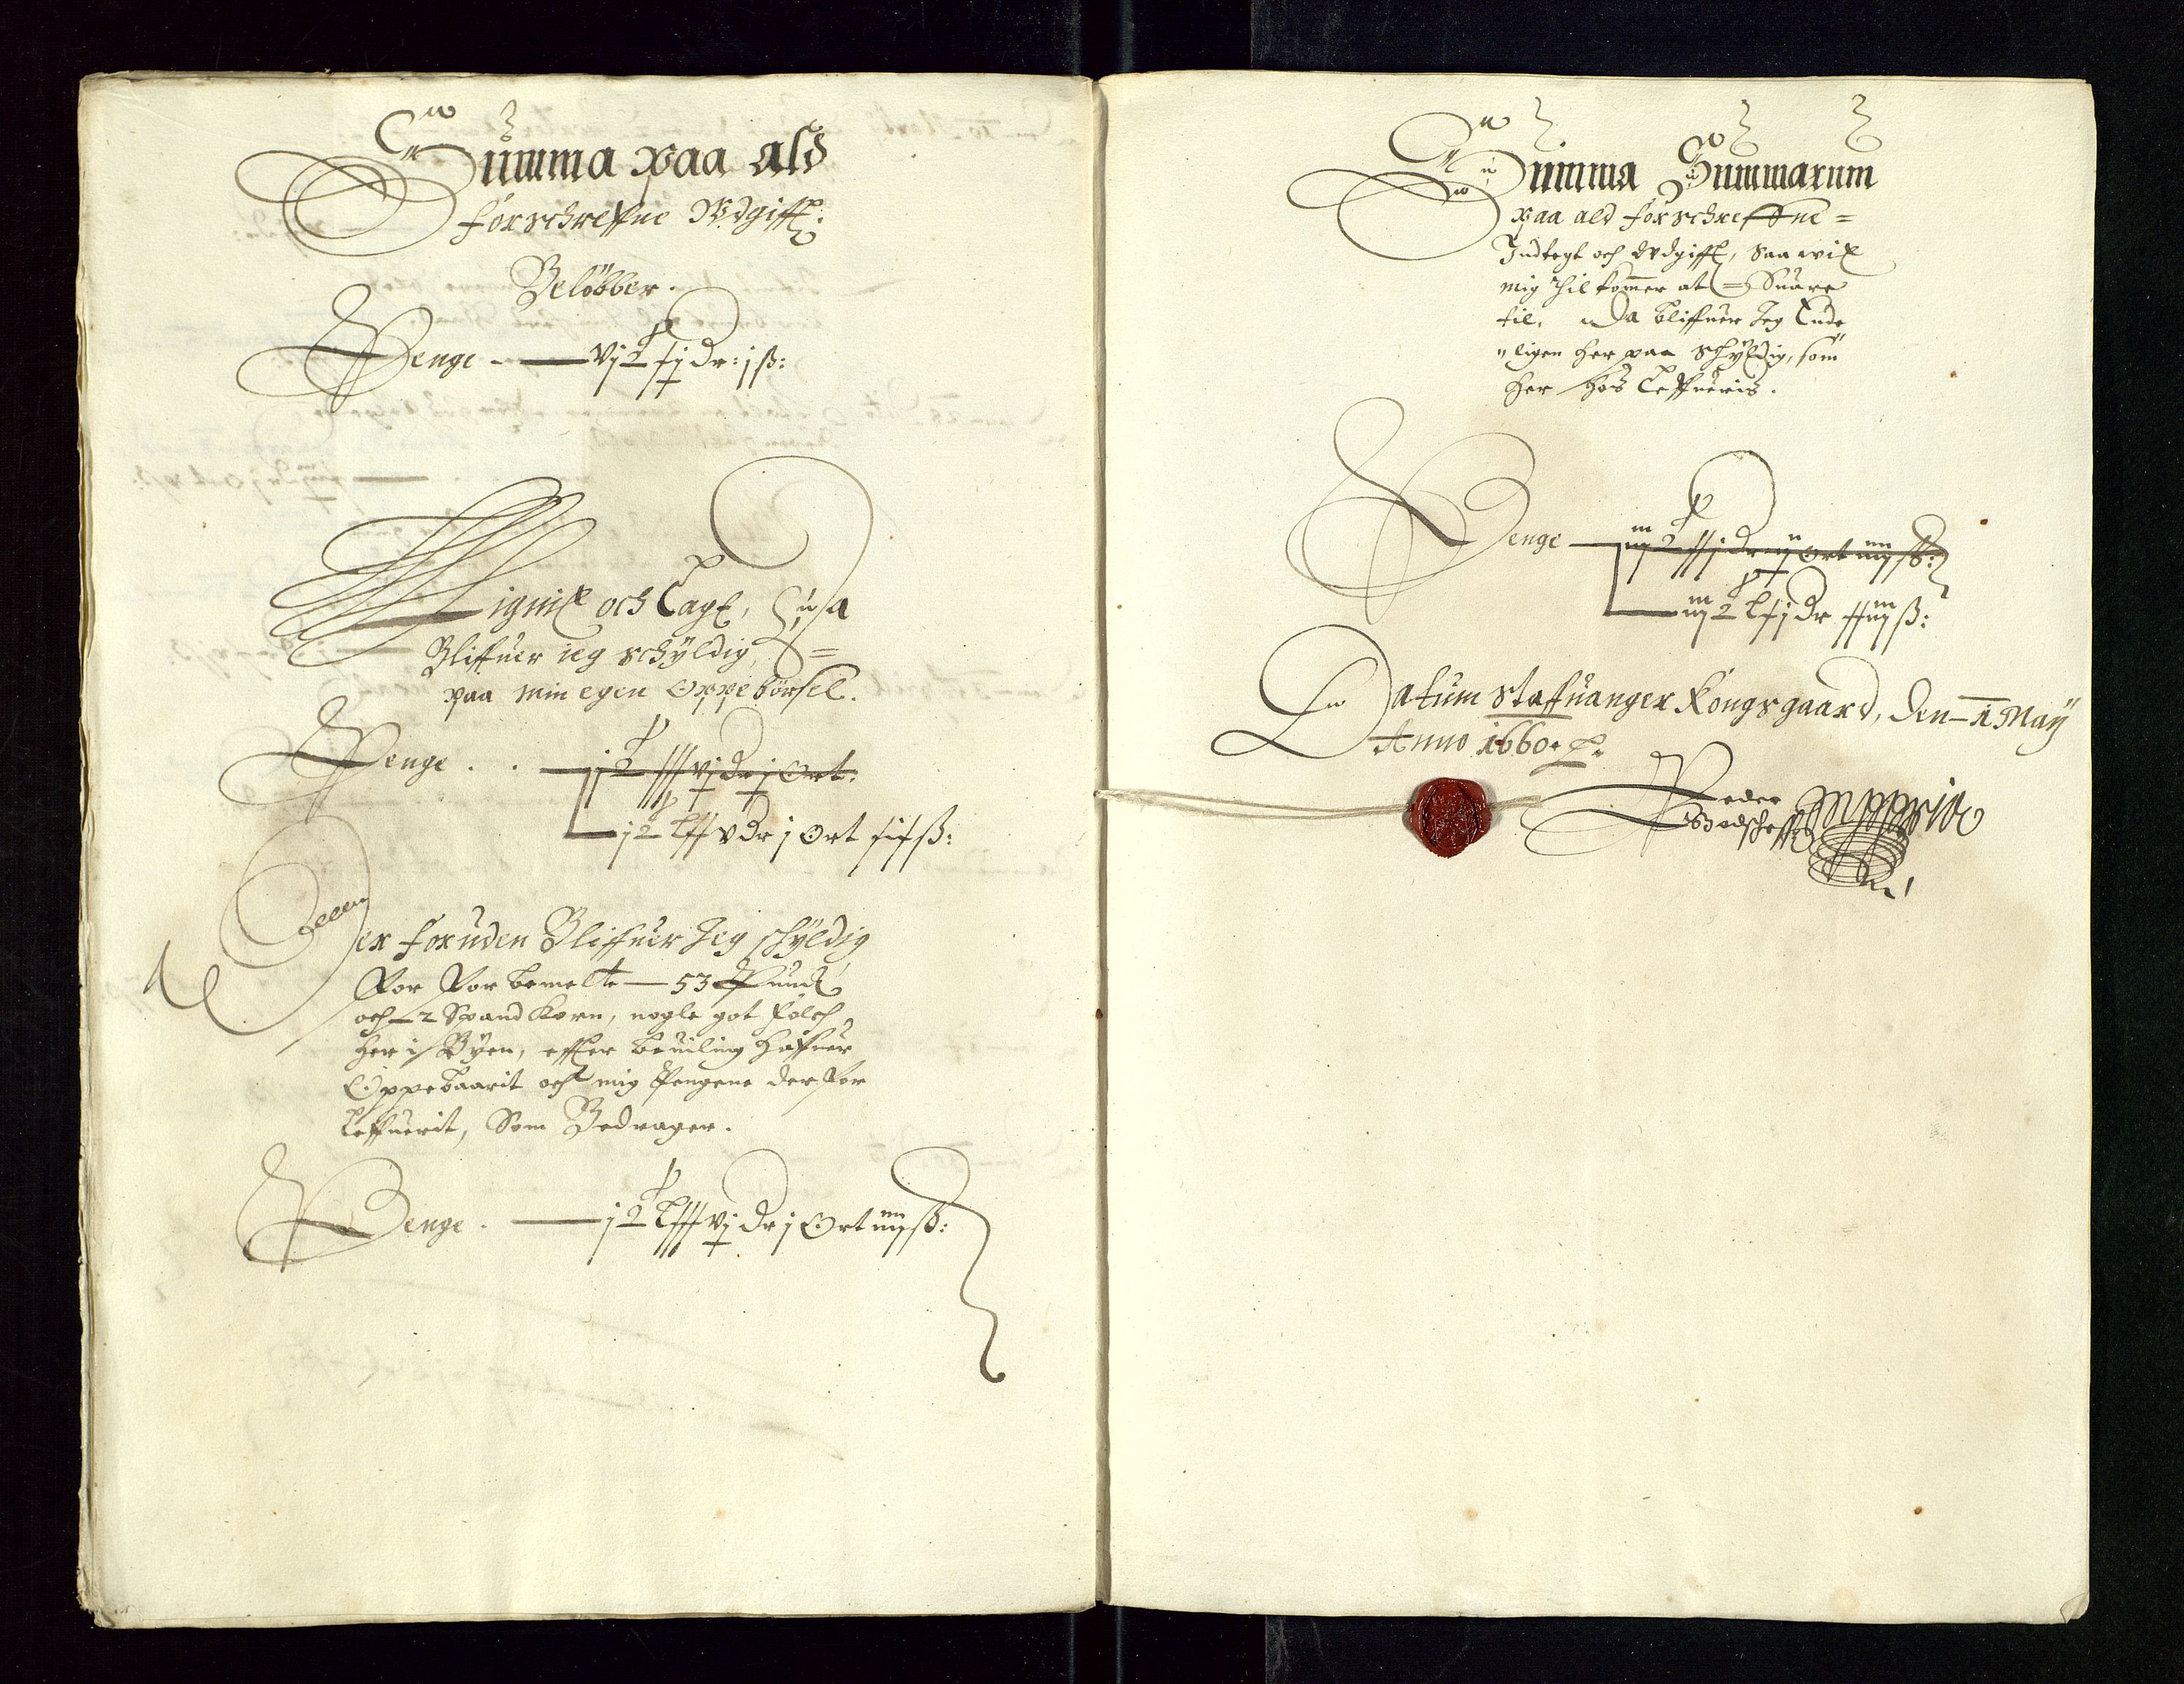 Summa paa ald
forschreffne Vdgifft:
Belöbber.
Penge - — vj
dr: j ß:
Lignit och Lagt, Saa
Bliffuer ieg schÿldig, =
paa min egen Oppebörsel.
Penge . . — vj dr j Ort:
v dr j Ort ß:
Der foruden Bliffuer Jeg schÿldig
For Forbemelte — 53 Pund
och — 2 Spand Korn, nogle got folch
her i Bÿen, effter beuiling haffuer
Oppebaarit och mig Pengene derfor
Leffuerit, Som Bedrager.
Penge . — vj dr j Ort iiij ß:
Summa Summarum
paa ald forschreffne =
Indtegt och Vdgifft, saa wit
mig til kommer at = Suare
til, Da bliffuer Jeg Ende
"ligen her paa schÿldig, som
her hos Leffueris.
Penge — dr ij Ort iiij ß:
dr ß:
Datum Staffuanger Kongsgaard, den — 1 Maÿ
Anno 1660.
Peder
mppria